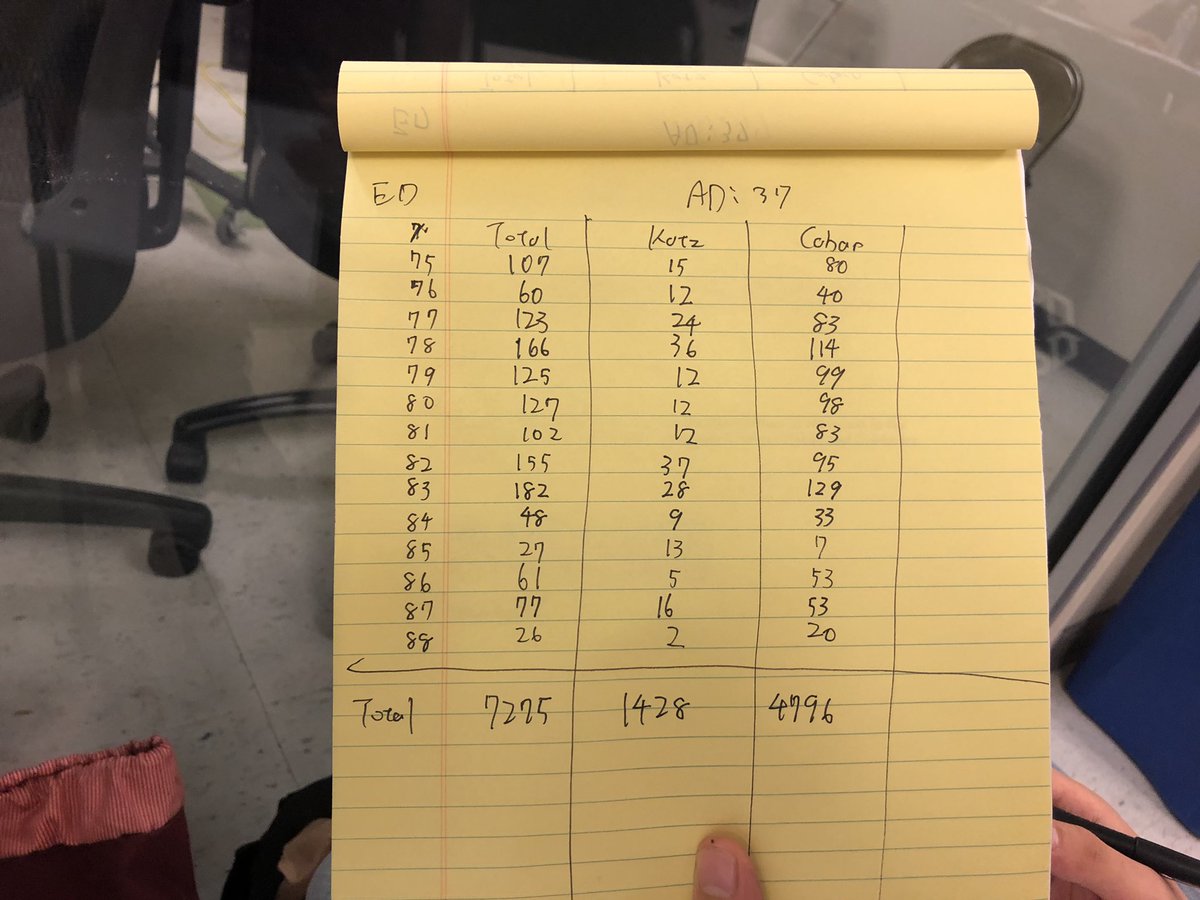 ED AD: 37
Total Katz Caban
75 107 15 80
76 60 12 40
77 123 24 83
78 166 36 114
79 125 12 99
80 127 12 98
81 102 12 83
82 155 37 95
83 182 28 129
84 48 9 33
85 27 13 7
86 61 5 53
87 77 16 53
88 26 2 20
Total 7275 1428 4796